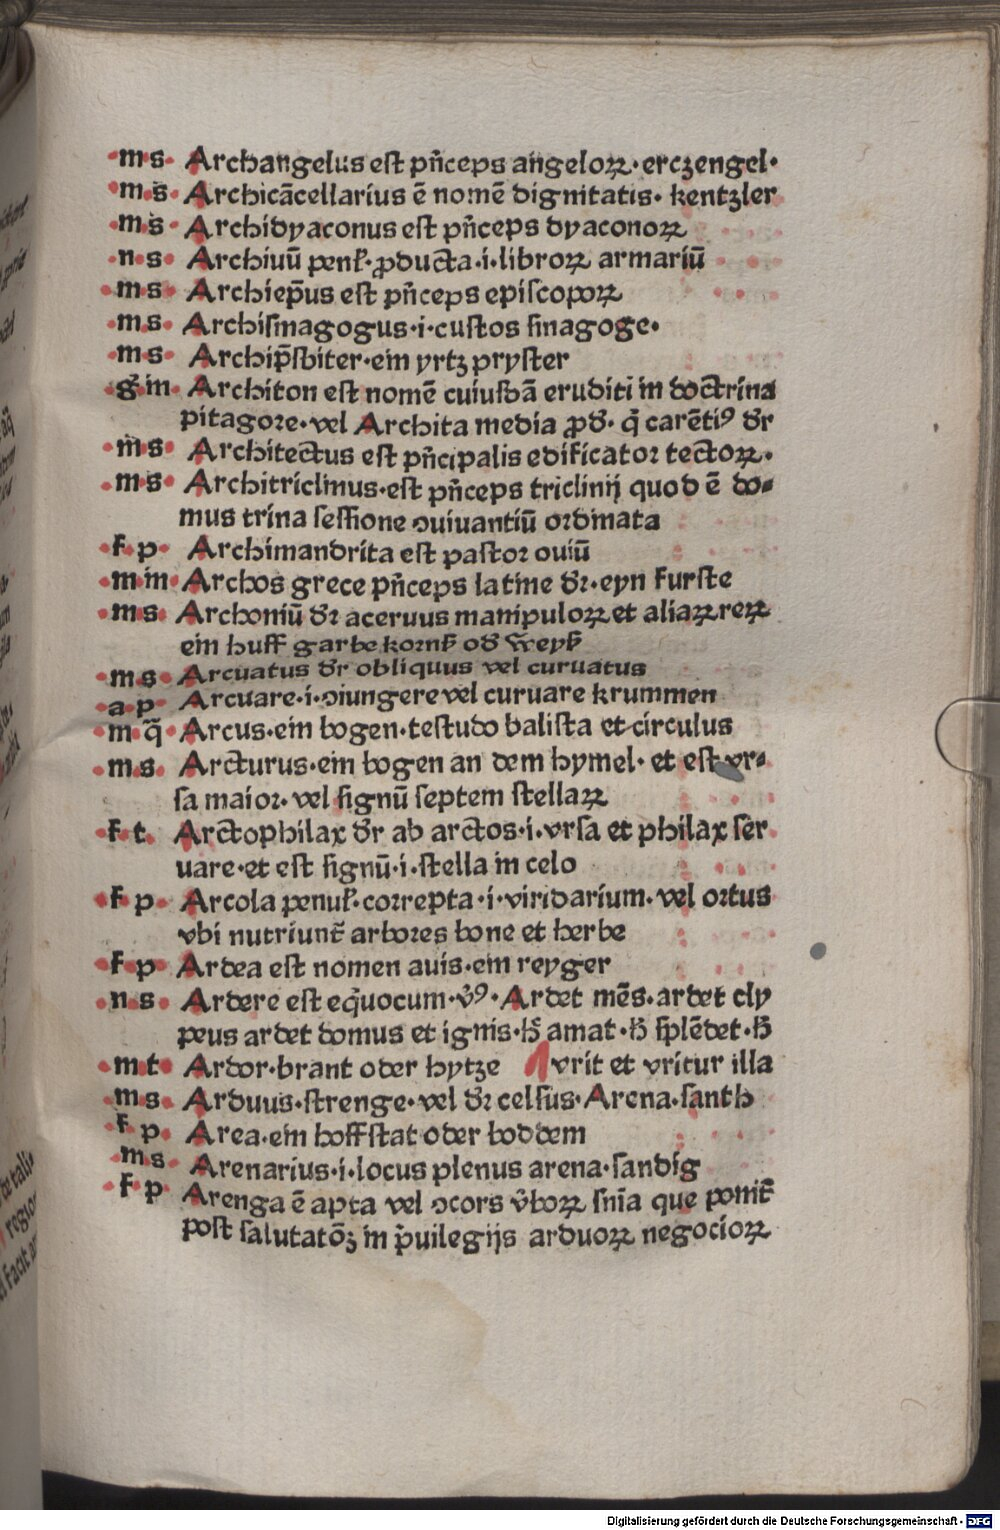 ·m·s· Archangelus est pn̄ceps angeloꝝ·erczengel·
·m·s· Archicācellarius ē nomē dignitatis· kentzler
·m·s· Archidyaconus est pn̄ceps dyaconoꝝ
·n·s· Archiuū penuł·ꝓducta·i·libroꝝ armariū
·m·s· Archiep̄us est pn̄ceps episcopoꝝ
·m·s· Archisinagogus·i·custos sinagoge·
·m·s· Archip̄sbiter·ein yrtz pryster
·g·m· Architon est nomē cuiusdā eruditi in doctrina
pitagore·vel Archita media ꝓd·q̄ carētiꝰ dr
·m·s· Architectus est pn̄cipalis edificator tectoꝝ·
·m·s· Architriclinus·est pn̄ceps triclinij quod ē do-
mus trina sessione ↄuiuantiū ordinata
·f·p· Archimandrita est pastor ouiū
·m·m· Archos grece pn̄ceps latine dr·eyn furste
·m·s· Archoniū dr aceruus manipuloꝝ et aliaꝝ reꝝ
ein huff garbe
·m·s· Arcuatus dr obliquus vel curuatus
·a·p· Arcuare·i·ↄiungere vel curuare krummen
·m·q̄· Arcus·ein bogen·testudo balista et circulus
·m·s· Arcturus·ein bogen an dem hymel· et est vr-
sa maior·vel signū septem stellaꝝ
·f·t· Arctophilax dr ab arctos·i·vrsa et philax ser
uare·et est signū·i·stella in celo
·f·p· Arcola penuł·correpta·i·viridarium·vel ortus
vbi nutriunt̄ arbores bone et herbe
·f·p· Ardea est nomen auis·ein reyger
·n·s· Ardere est eq̄uocum·v̄ꝰ·Ardet mēs·ardet cly
peus ardet domus et ignis·h̄ amat·h̄ splēdet·h̄
·m·t· Ardor·brant oder hytze ¶vrit et vritur illa
·m·s· Arduus·strenge·vel dr celsus·Arena·santh
f·p· Area·ein hoffstat oder boddem
m·s· Arenarius·i·locus plenus arena·sandig
·f·p Arenga ē apta vel ↄcors v̄boꝝ sn̄ia que ponit̄
post salutatōꝫ in p̄uilegijs arduoꝝ negocioꝝ
Digitalisierung gefördert durch die Deutsche Forschungsgemeinschaft - DFG